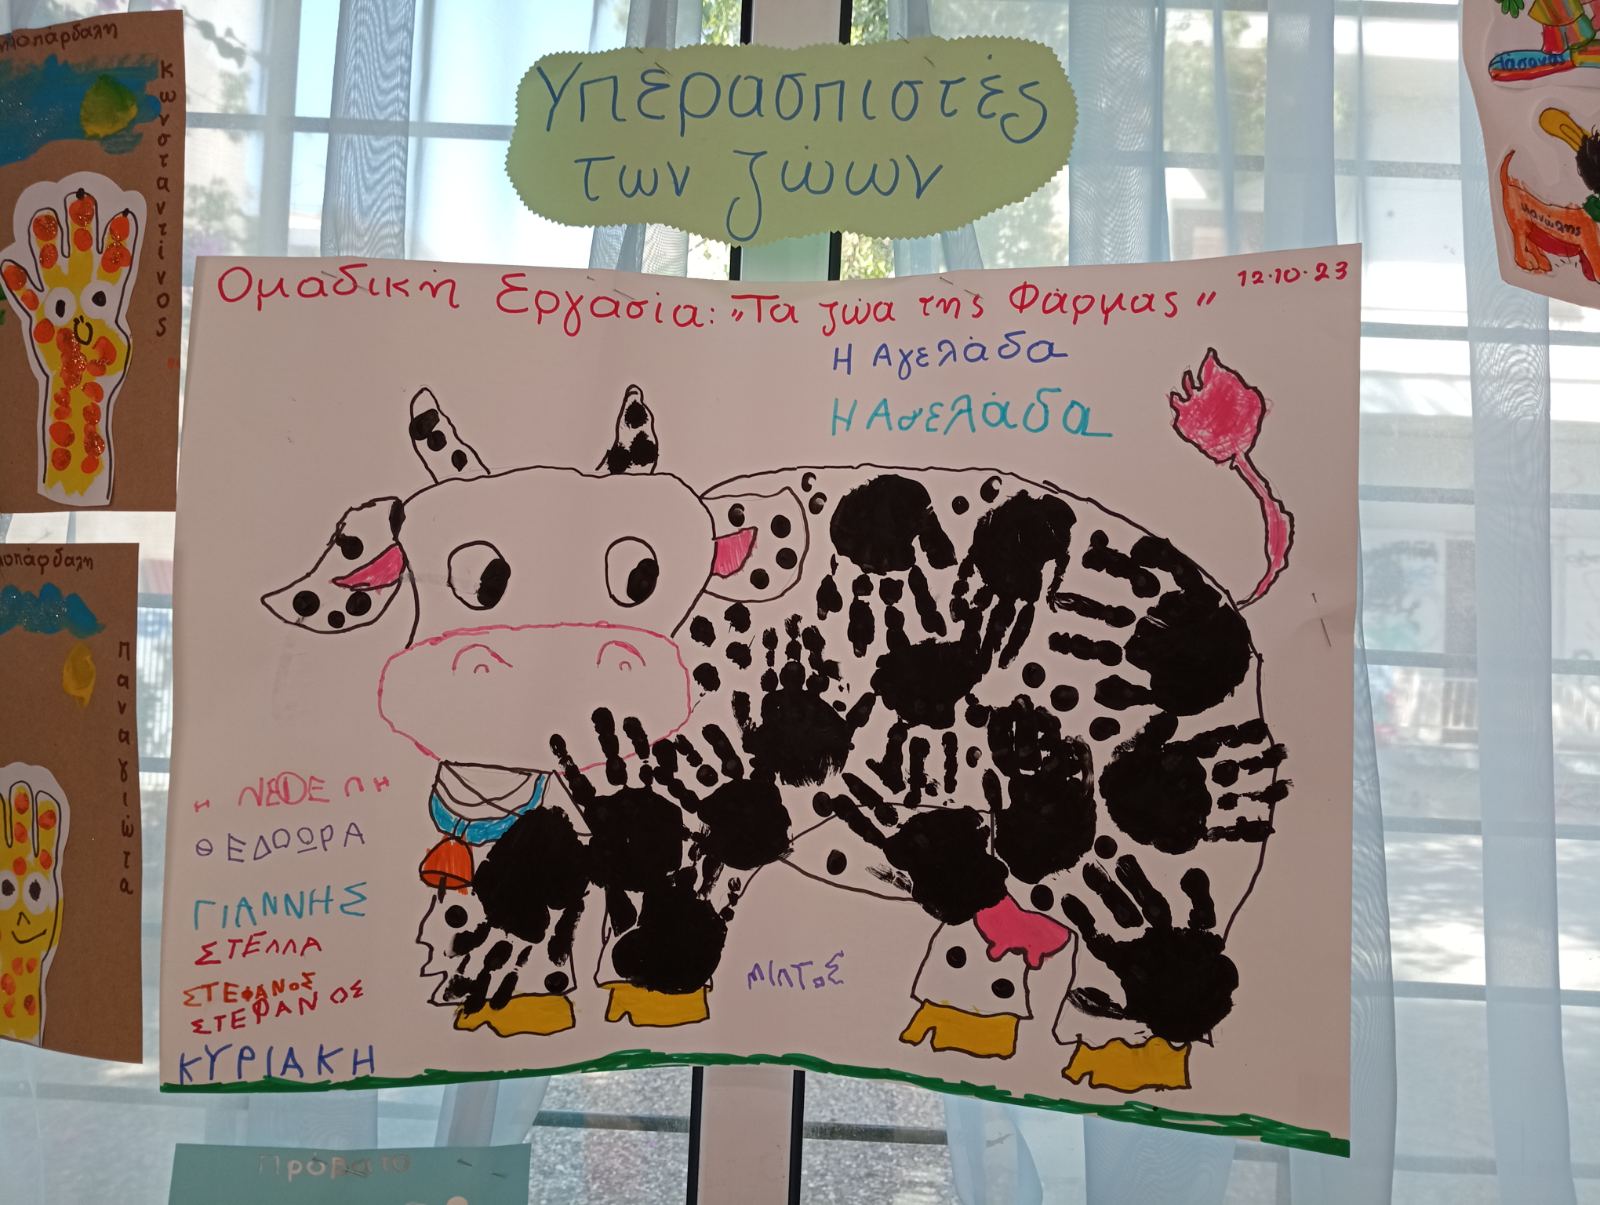 Υπερασπιστές
των ζώων
Ομαδική Εργασία: „Τα ζώα της Φάρμας"
12.10.23
Η Αγελάδα
Η Αγελάδα
Η ΝΕΦΕΛΗ
ΘΕΔΟΩΡΑ
ΓΙΑΝΝΗΣ
ΣΤΕΛΛΑ
ΣΤΕΦΑΝΟΣ
ΣΤΕΦΑΝΟΣ
ΚΥΡΙΑΚΗ
ΜΙΛΤΟΣ
Κωνσταντίνος
Παναγιώτα
Πρόβατο
Μανώλης